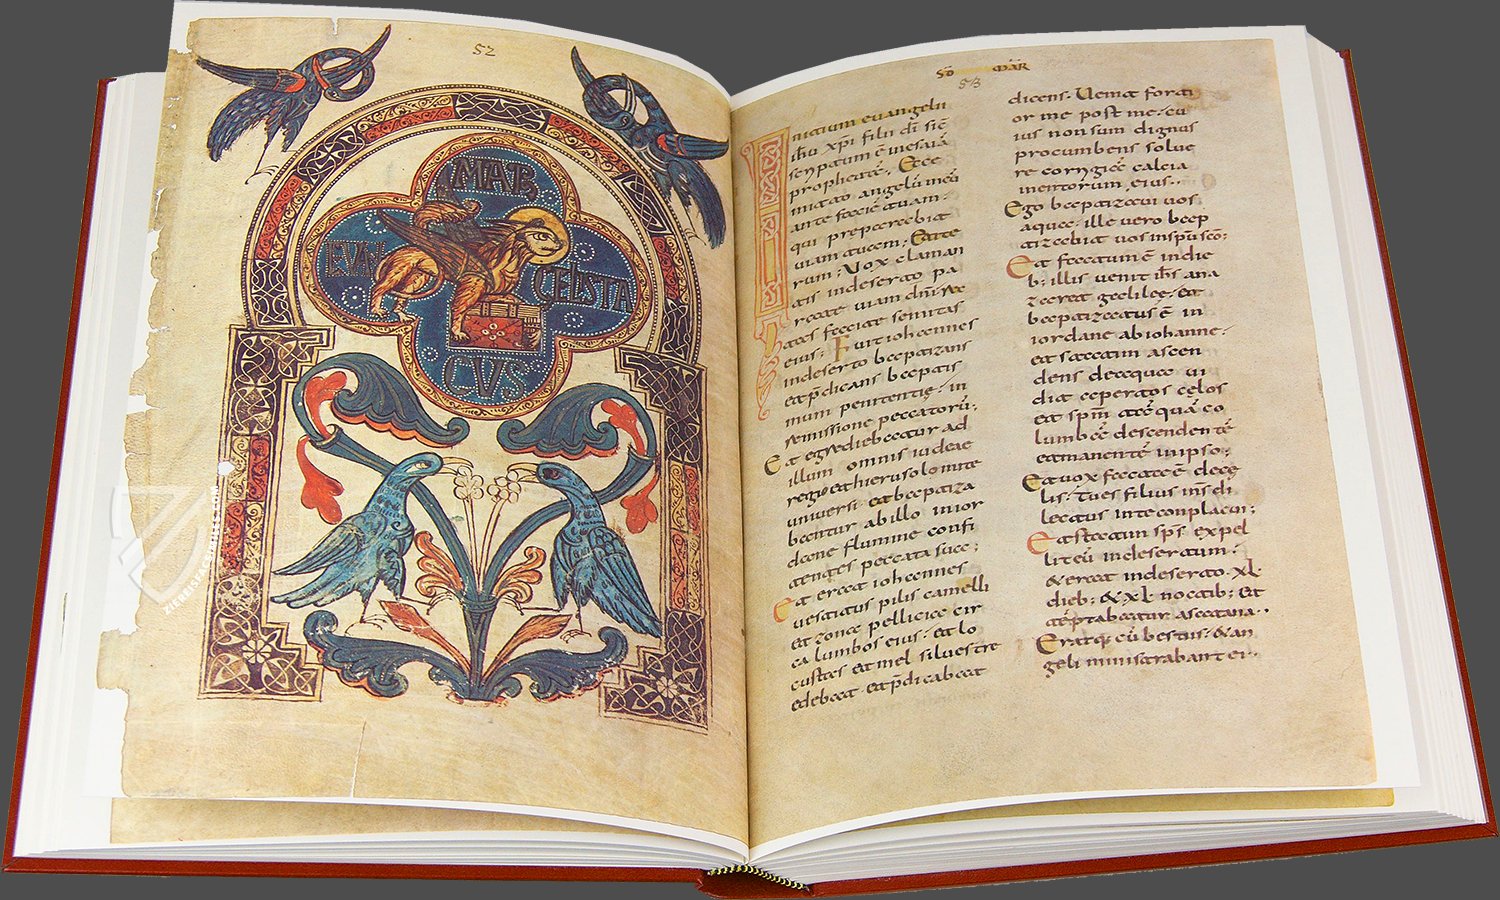 52
MAR
EVAN
GELISTA
CVS
ZIEREIS
SD MAR
53
Initium evangelii
ihu xpi filii di sic
scriptum ē inesaia
propheta. Ecce
mitto angelū meū
ante faciē tuam.
qui preparabit
viam tuam; Parate
rum. Vox claman
tis indeserto pa
rate viam dni
tas facite semitas
eius; Fuit iohannes
indeserto baptizans
et pdicans baptis
mum penitentię. in
remissione peccatorū;
Et egrediebatur ad
illum omnis iudeae
regio et hierusolomite
universi. et baptiza
bantur ab illo inior
dane flumine confi
tentes peccata sua;
Et erat iohannes
vestitus pilis camelli
et zona pellicia cir
ca lumbos eius. et lo
custas et mel silvestre
edebat. et pdicabat
dicens. Venit forti
or me post me. cu
ius non sum dignus
procumbens solve
re corrigiē calcia
mentorum eius.
Ego baptizavi vos
aqua. ille vero bap
tizabit vos inspu sco;
Et factum ē indie
b; illis venit ihs ana
zareth galileę. et
baptizatus ē in
iordane abiohanne.
et statim ascen
dens de aqua vi
dit apertos cęlos
et spm tāquā co
lumbā descendentē
et manentē inipso;
Et vox facta ē de cę
lis. Tu es filius ms di
lectus inte conplacui;
Et statim sps expel
lit eū indesertum.
& erat indeserto. XL
dieb; & XL noctib; et
tēptabatur asatana..
Eratq cū bestiis. & an
geli ministrabant ei..